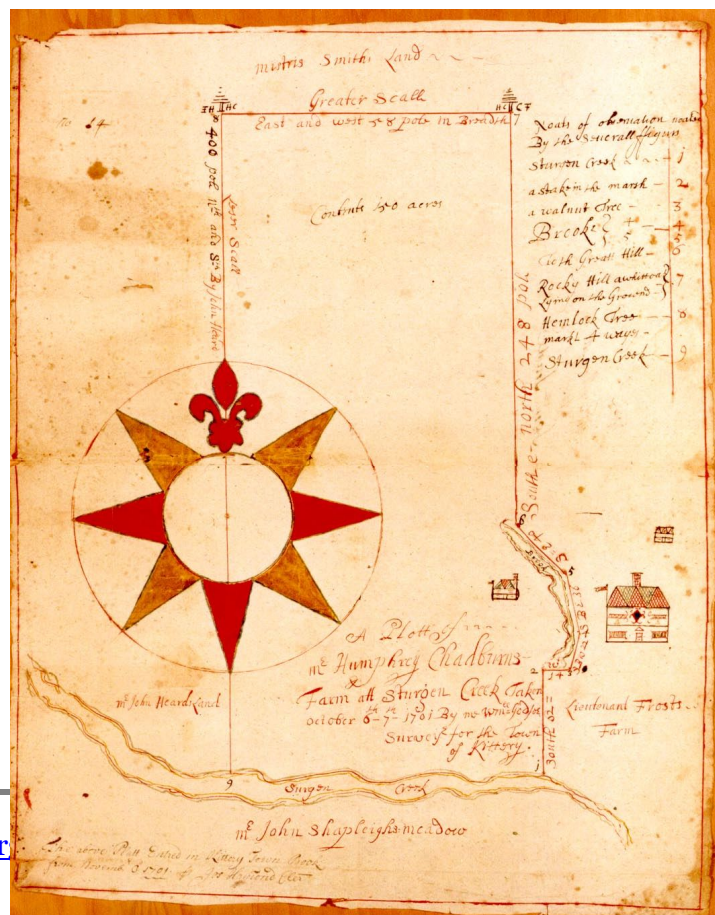 mistris Smiths Land
Greater Scale
IH HC
HC CF
8
East and west 58 pole in Breadth 7
No 14
400 pole Nth and Sth By John Heards
Lesser Scale
Contents 150 acres
Noats of observation noated
By the Severall figurs
Sturgen Creek 1
a stake in the marsh 2
a walnut Tree 3
Brooke 4
5
Great Hill 6
Rocky Hill a whitoak 7
Lying on the Ground
Hemlock Tree 8
markt 4 wayes
Sturgen Creek 9
South e north 248 pole
6
5
Brook
A Plott of
mr Humphrey Chadburns
Farm att Sturgen Creek Taken
october 6th 7th 1701 By me Wm Godsoe
Surveyr for the Town
of Kittery.
mr John Heards Land
Lieutenant Frosts
Farm
South
1
9
Sturgen Creek
mr John Shapleighs meadow
The above Platt Entred in Kittery Town Book